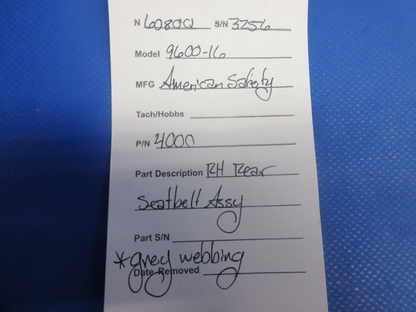 N 6080Q S/N 3256
Model 9600-16
MFG American Safety
Tach/Hobbs
P/N 4000
Part Description RH Rear
Seatbelt Assy
Part S/N
*grey webbing
Date Removed